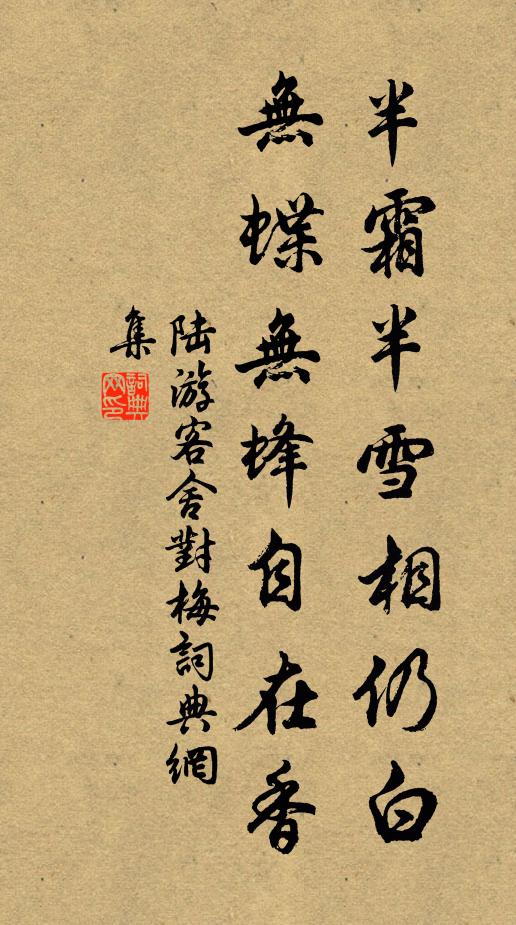 半霜半雪相仍白
無蝶無蜂自在香
陆游客舍對梅詞典網
集
詞典